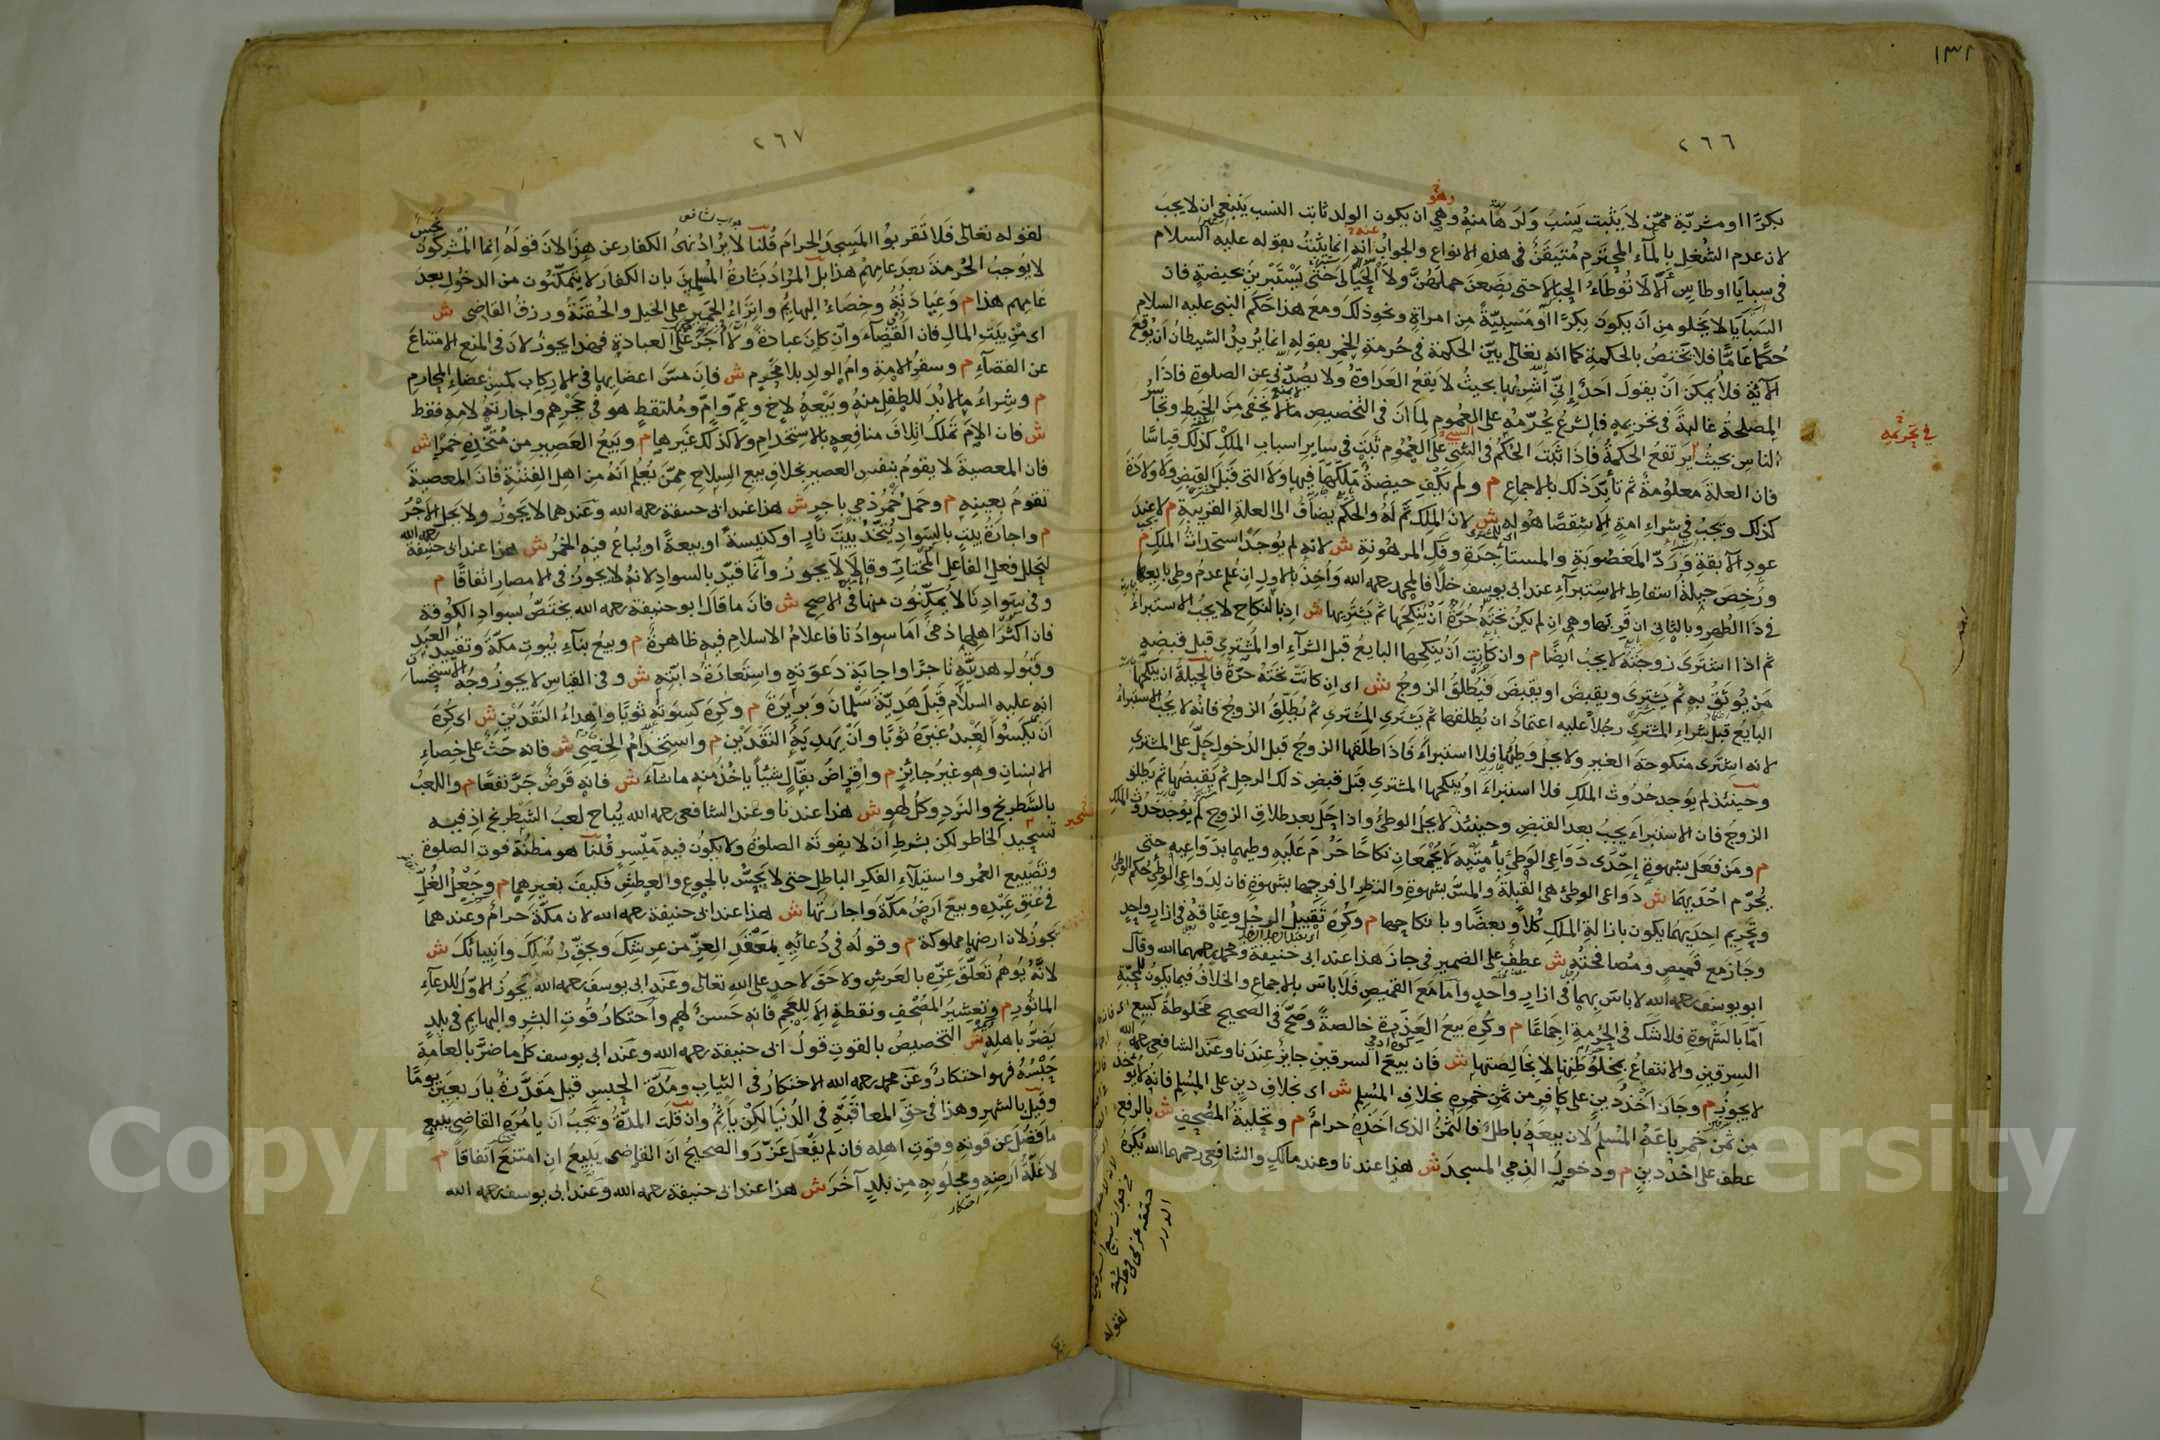 ١٣٢
٢٦٦
بكرًا او مشريّة ممّن لا يثبت نسب ولدها منه وهي ان يكون الولد ثابت النسب ينبغي ان لا يجب
لان عدم الشغل بالمآء المحترم متيقن في هذه الانواع والجواب انه انما يثبت بقوله عليه السلام
في سبايا اوطاس ألا لا توطاء الحبالى حتى يضعن حملهن ولا الحيالى حتى يستبرين بحيضة فان
السبايا لا يخلو من ان يكون بكرًا او مسبيّة من امراة ونحو ذلك ومع هذا حكم النبي عليه السلام
حكمًا عامًّا فلا يختص بالحكمة كما انه تعالى بيّن الحكمة في حرمة الخمر بقوله انما يريد الشيطان ان يوقع
الآية فلا يمكن ان يقول احد إنّي اشربها بحيث لا يقع العداوة ولا يصدّني عن الصلوة فاذا
المصلحة غالبة في تحريمه فالشرع يحرّمه على العموم لما ان في التخصيص ما لا يخفى من الخبط وتجاسر
الناس بحيث يرتفع الحكمة فاذا ثبت الحكم في السبي على العموم ثبت في ساير اسباب الملك كذلك قياسًا
فان العلة معلومة ثم تأيّد ذلك بالاجماع م ولم يكف حيضة ملكها فيها ولا التي قبل القبض ولا ولادة
كذلك ويجب في شراء امة إلا شقصًا هو له ش لان الملك تم له والحكم يضاف الى العلة القريبة م لا عند
عود الآبقة ورد المغصوبة والمستأجرة وفك المرهونة ش لانه لم يوجد استحداث الملك م
ورخص حيلة اسقاط الاستبراء عند ابي يوسف خلافًا لمحمد رحمه الله واخذ بالاول ان علم عدم وطي بايعها
في ذا الطهر وبالثاني ان قربها وهي ان لم تكن تحته حرة ان ينكحها ثم يشتريها ش اذ بالنكاح لا يجب الاستبراء
ثم اذا اشترى زوجته لا يجب ايضًا م وان كانت ان ينكحها البايع قبل الشرآء او المشتري قبل قبضه
من يوثق به ثم يشتري ويقبض او يقبض فيطلق الزوج ش اي ان كانت تحته حرة فالحيلة ان ينكحها
البايع قبل شراء المشتري رجلا عليه اعتماد ان يطلقها ثم يشتري المشتري ثم يطلق الزوج فانه لا يجب الاستبراء
لانه اشترى منكوحة الغير ولا يحل وطيها فلا استبراء فاذا طلقها الزوج قبل الدخول حلّ على المشتري
وحينئذ لم يوجد حدوث الملك فلا استبراء او ينكحها المشتري قبل قبض ذلك الرجل ثم يقبضها ثم يطلق
الزوج فان الاستبراء يجب بعد القبض وحينئذ لا يحل الوطئ واذا حل بعد طلاق الزوج لم يوجد حدوث الملك
م ومن فعل بشهوة احدى دواعي الوطئ بأمتيه لا يجتمعان نكاحًا حرم عليه وطيهما بدواعيه حتى
يحرّم احديهما ش دواعي الوطئ هي القبلة والمس بشهوة والنظر الى فرجها بشهوة فان لدواعي الوطئ حكم الوطئ
وتحريم احديهما يكون بازالة الملك كلاً او بعضًا او بانكاحها م وكره تقبيل الرجل وعناقه في ازار واحد
وجاز مع قميص ومصافحته ش عطف على الضمير في جاز هذا عند ابي حنيفة ومحمد رحمهما الله وقال
ابو يوسف رحمه الله لا باس بهما في ازار واحد واما مع القميص فلا باس بالاجماع والخلاف فيما يكون للمحبة
امّا بالشهوة فلا شك في الحرمة اجماعًا م وكره بيع العذرة خالصة وصح في الصحيح مخلوطة كبيع
السرقين والانتفاع بمخلوطتها لا بخالصتها ش فان بيع السرقين جايز عندنا وعند الشافعي رحمه الله
لا يجوز م وجاز اخذ دين على كافر من ثمن خمره بخلاف المسلم ش اي بخلاف دين على المسلم فانه لا يؤخذ
من ثمن خمر باعه المسلم لان بيعه باطل فالثمن الذي اخذه حرام م وتحلية المصحف ش بالرفع
عطف على اخذ دين م ودخول الذمي المسجد ش هذا عندنا وعند مالك والشافعي رحمهما الله يكره
في تحريمه
٢٦٧
لقوله تعالى فلا تقربوا المسجد الحرام قلنا لا يراد نهى الكفار عن هذا لان قوله انما المشركون نجس
لا يوجب الحرمة بعد عامهم هذا بل المراد بشارة المسلمين بان الكفار لا يتمكنون من الدخول بعد
عامهم هذا م وعيادته وخصاء البهايم وانزاء الحمير على الخيل والحقنة ورزق القاضي ش
اى من بيت المال فان القضآء وان كان عبادة ولا اجر على العبادة فهذا يجوز لان في المنع الامتناع
عن القضآء م وسفر الامة وام الولد بلا محرم ش فان مس اعضايها في الاركاب كمس اعضاء المحارم
م وشراء ما لا بد للطفل منه وبيعه لاخ وعم وام وملتقط هو في حجرهم واجارته لامه فقط
ش فان الام تملك اتلاف منافعه بالاستخدام ولا كذلك غيرها م وبيع العصير من متخذه خمرًا ش
فان المعصية لا يقوم بنفس العصير بخلاف بيع السلاح ممن يعلم انه من اهل الفتنة فان المعصية
تقوم بعينه م وحمل خمر ذمي باجر ش هذا عند ابي حنيفة رحمه الله وعندهما لا يجوز ولا يحل الاجر
م واجارة بيت بالسواد ليتخذ بيت نار او كنيسة او بيعة او يباع فيه الخمر ش هذا عند ابي حنيفة رحمه الله
لتخلل فعل الفاعل المختار وقالا لا يجوز وانما قيد بالسواد لانه لا يجوز في الامصار اتفاقًا م
وفي سوادنا لا يمكنون منها في الاصح ش فان ما قال ابو حنيفة رحمه الله يختص بسواد الكوفة
فان اكثر اهلها ذمي اما سوادنا فاعلام الاسلام فيه ظاهرة م وبيع بناء بيوت مكة وتقييد العبد
وقبول هديته تاجرًا واجابة دعوته واستعارة دابته ش وفي القياس لا يجوز وجه الاستحسان
انه عليه السلام قبل هدية سلمان وبريرة م وكره كسوته ثوبًا واهداء النقدين ش اي كره
ان يكسو العبد غيره ثوبًا وان يهديه النقدين م واستخدام الخصي ش فانه حث على خصاء
الانسان وهو غير جائز م واقراض بقال شيئًا ياخذ منه ما شآء ش فانه قرض جر نفعًا م واللعب
بالشطرنج والنرد وكل لهو ش هذا عندنا وعند الشافعي رحمه الله يباح لعب الشطرنج اذ فيه
تشحيذ الخاطر لكن بشرط ان لا يفوته الصلوة ولا يكون فيه ميسر قلنا هو مظنة فوت الصلوة
وتضييع العمر واستيلاء الفكر الباطل حتى لا يحس بالجوع والعطش فكيف بغيرهما م وجعل الغل
في عنق عبده وبيع ارض مكة واجارتها ش هذا عند ابي حنيفة رحمه الله لان مكة حرام وعندهما
يجوز لان ارضها مملوكة م وقوله في دعائه بمعقد العز من عرشك وبحق رسلك وانبيائك ش
لانه يوهم تعلق عزه بالعرش ولا حق لاحد على الله تعالى وعند ابي يوسف رحمه الله يجوز الاول للدعآء
الماثور م وتعشير المصحف ونقطه إلا للعجم فانه حسن لهم واحتكار قوت البشر والبهايم في بلد
يضر باهله ش التخصيص بالقوت قول ابي حنيفة رحمه الله وعند ابي يوسف كل ما ضر بالعامة
حبسه فهو احتكار وعن محمد رحمه الله الاحتكار في الثياب ومدة الحبس قيل مقدرة باربعين يومًا
وقيل بالشهر وهذا في حق المعاقبة في الدنيا لكن يأثم وان قلت المدة ويجب ان يامره القاضي ببيع
ما فضل عن قوته وقوت اهله فان لم يفعل عزّر والصحيح ان القاضي يبيع ان امتنع اتفاقًا م
لا غلة ارضه ومجلوبه من بلد آخر ش هذا عند ابي حنيفة رحمه الله وعند ابي يوسف رحمه الله
احتكار
لقوله
Copyright © King Saud University